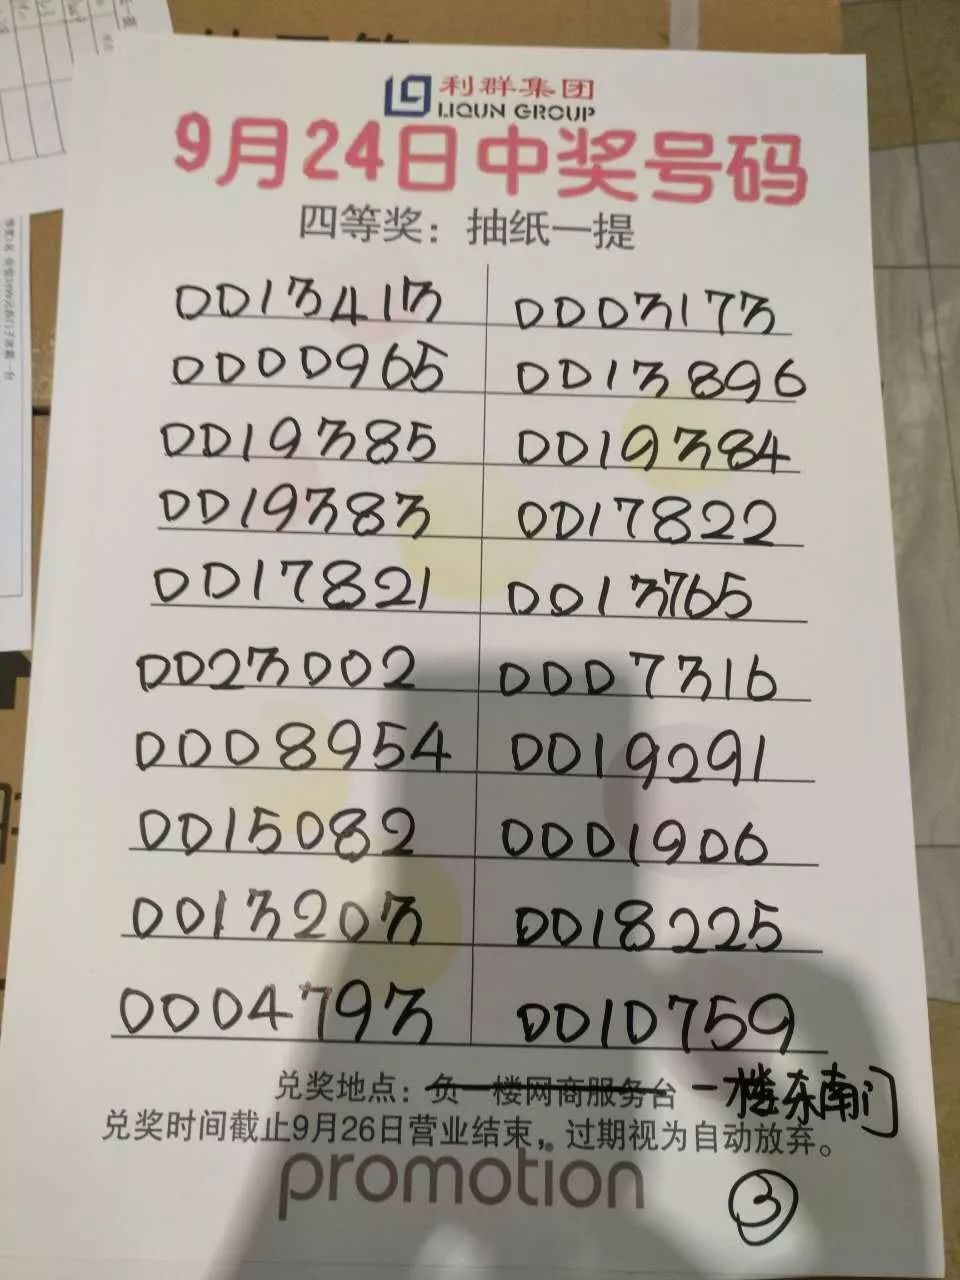 利群集团
LIQUN GROUP
9月24日中奖号码
四等奖：抽纸一提
0013413 0003173
0000965 0013896
0019385 0019384
0019383 0017822
0017821 0013765
0023002 0007316
0008954 0019291
0015082 0001906
0013203 0018225
0004793 0010759
兑奖地点：负一楼网商服务台 一楼东南门
兑奖时间截止9月26日营业结束，过期视为自动放弃。
promotion
③